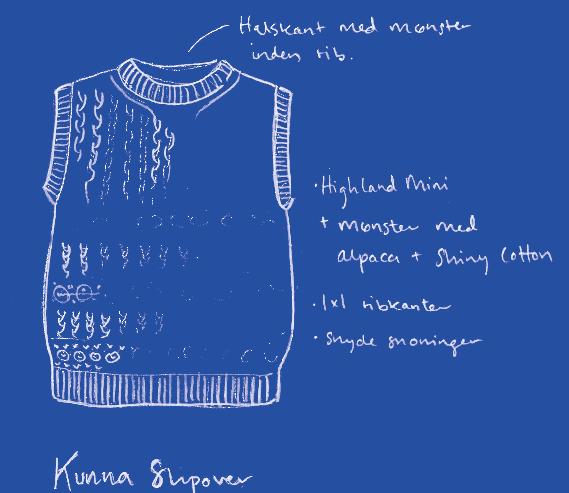 Halskant med mønster
inden rib.
• Highland Mini
+ mønster med
alpaca + Shiny Cotton
• 1x1 ribkanter
• snyde snoninger
Kunna Slipover